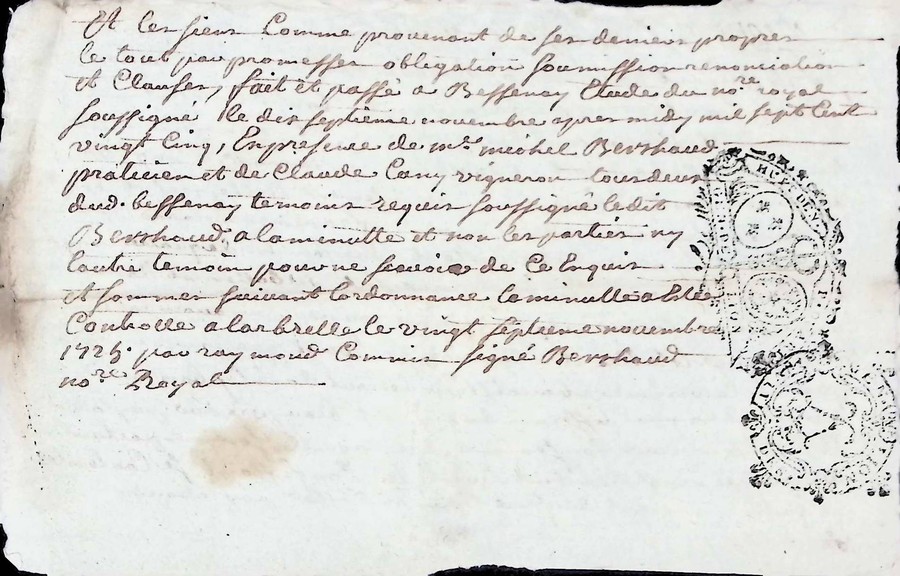 Et les siens Comme provenant de ses deniers propres
le tout par promesses obligation soumission renonciation
et Clauses, fait et passé a Bessenay Etude du no.re royal
soussigné le dix septieme novembre apres midy mil sept Cent
vingt Cinq, En presence de m.e michel Berthaud
praticien et de Claude Cany vigneron tous deux
dud. bessenay temoins requis soussigné ledit
Berthaud, a la minutte et non les parties ny
l'autre temoin pour ne sçavoir de Ce Enquis
et sommes suivant l'ordonnance la minutte a Esté
Controllé a larbrelle le vingt septieme novembre
1725. par raymond Commis signé Berthaud
no.re Royal